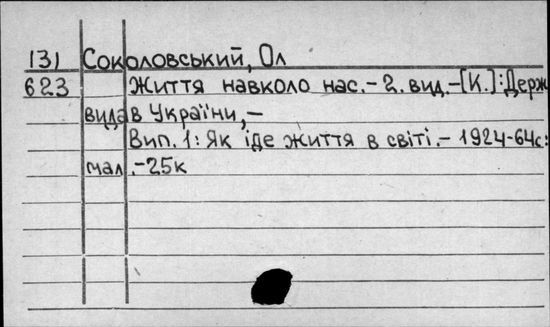 131 Соколовський, Ол
623 Життя навколо нас.-2. вид.-[К.]:Держ
видав України,-
Вип. 1: Як іде життя в світі.- 1924-64с.:
мал.-25к